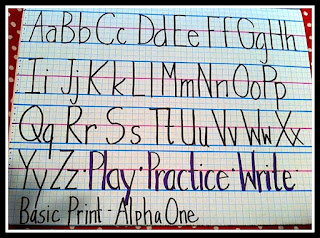 AaBbCc DdEe Ff GgHh
Ii Jj Kk Ll Mm Nn Oo Pp
Qq Rr Ss Tt Uu Vv Ww Xx
Yy Zz · Play · Practice · Write ·
Basic Print - Alpha One